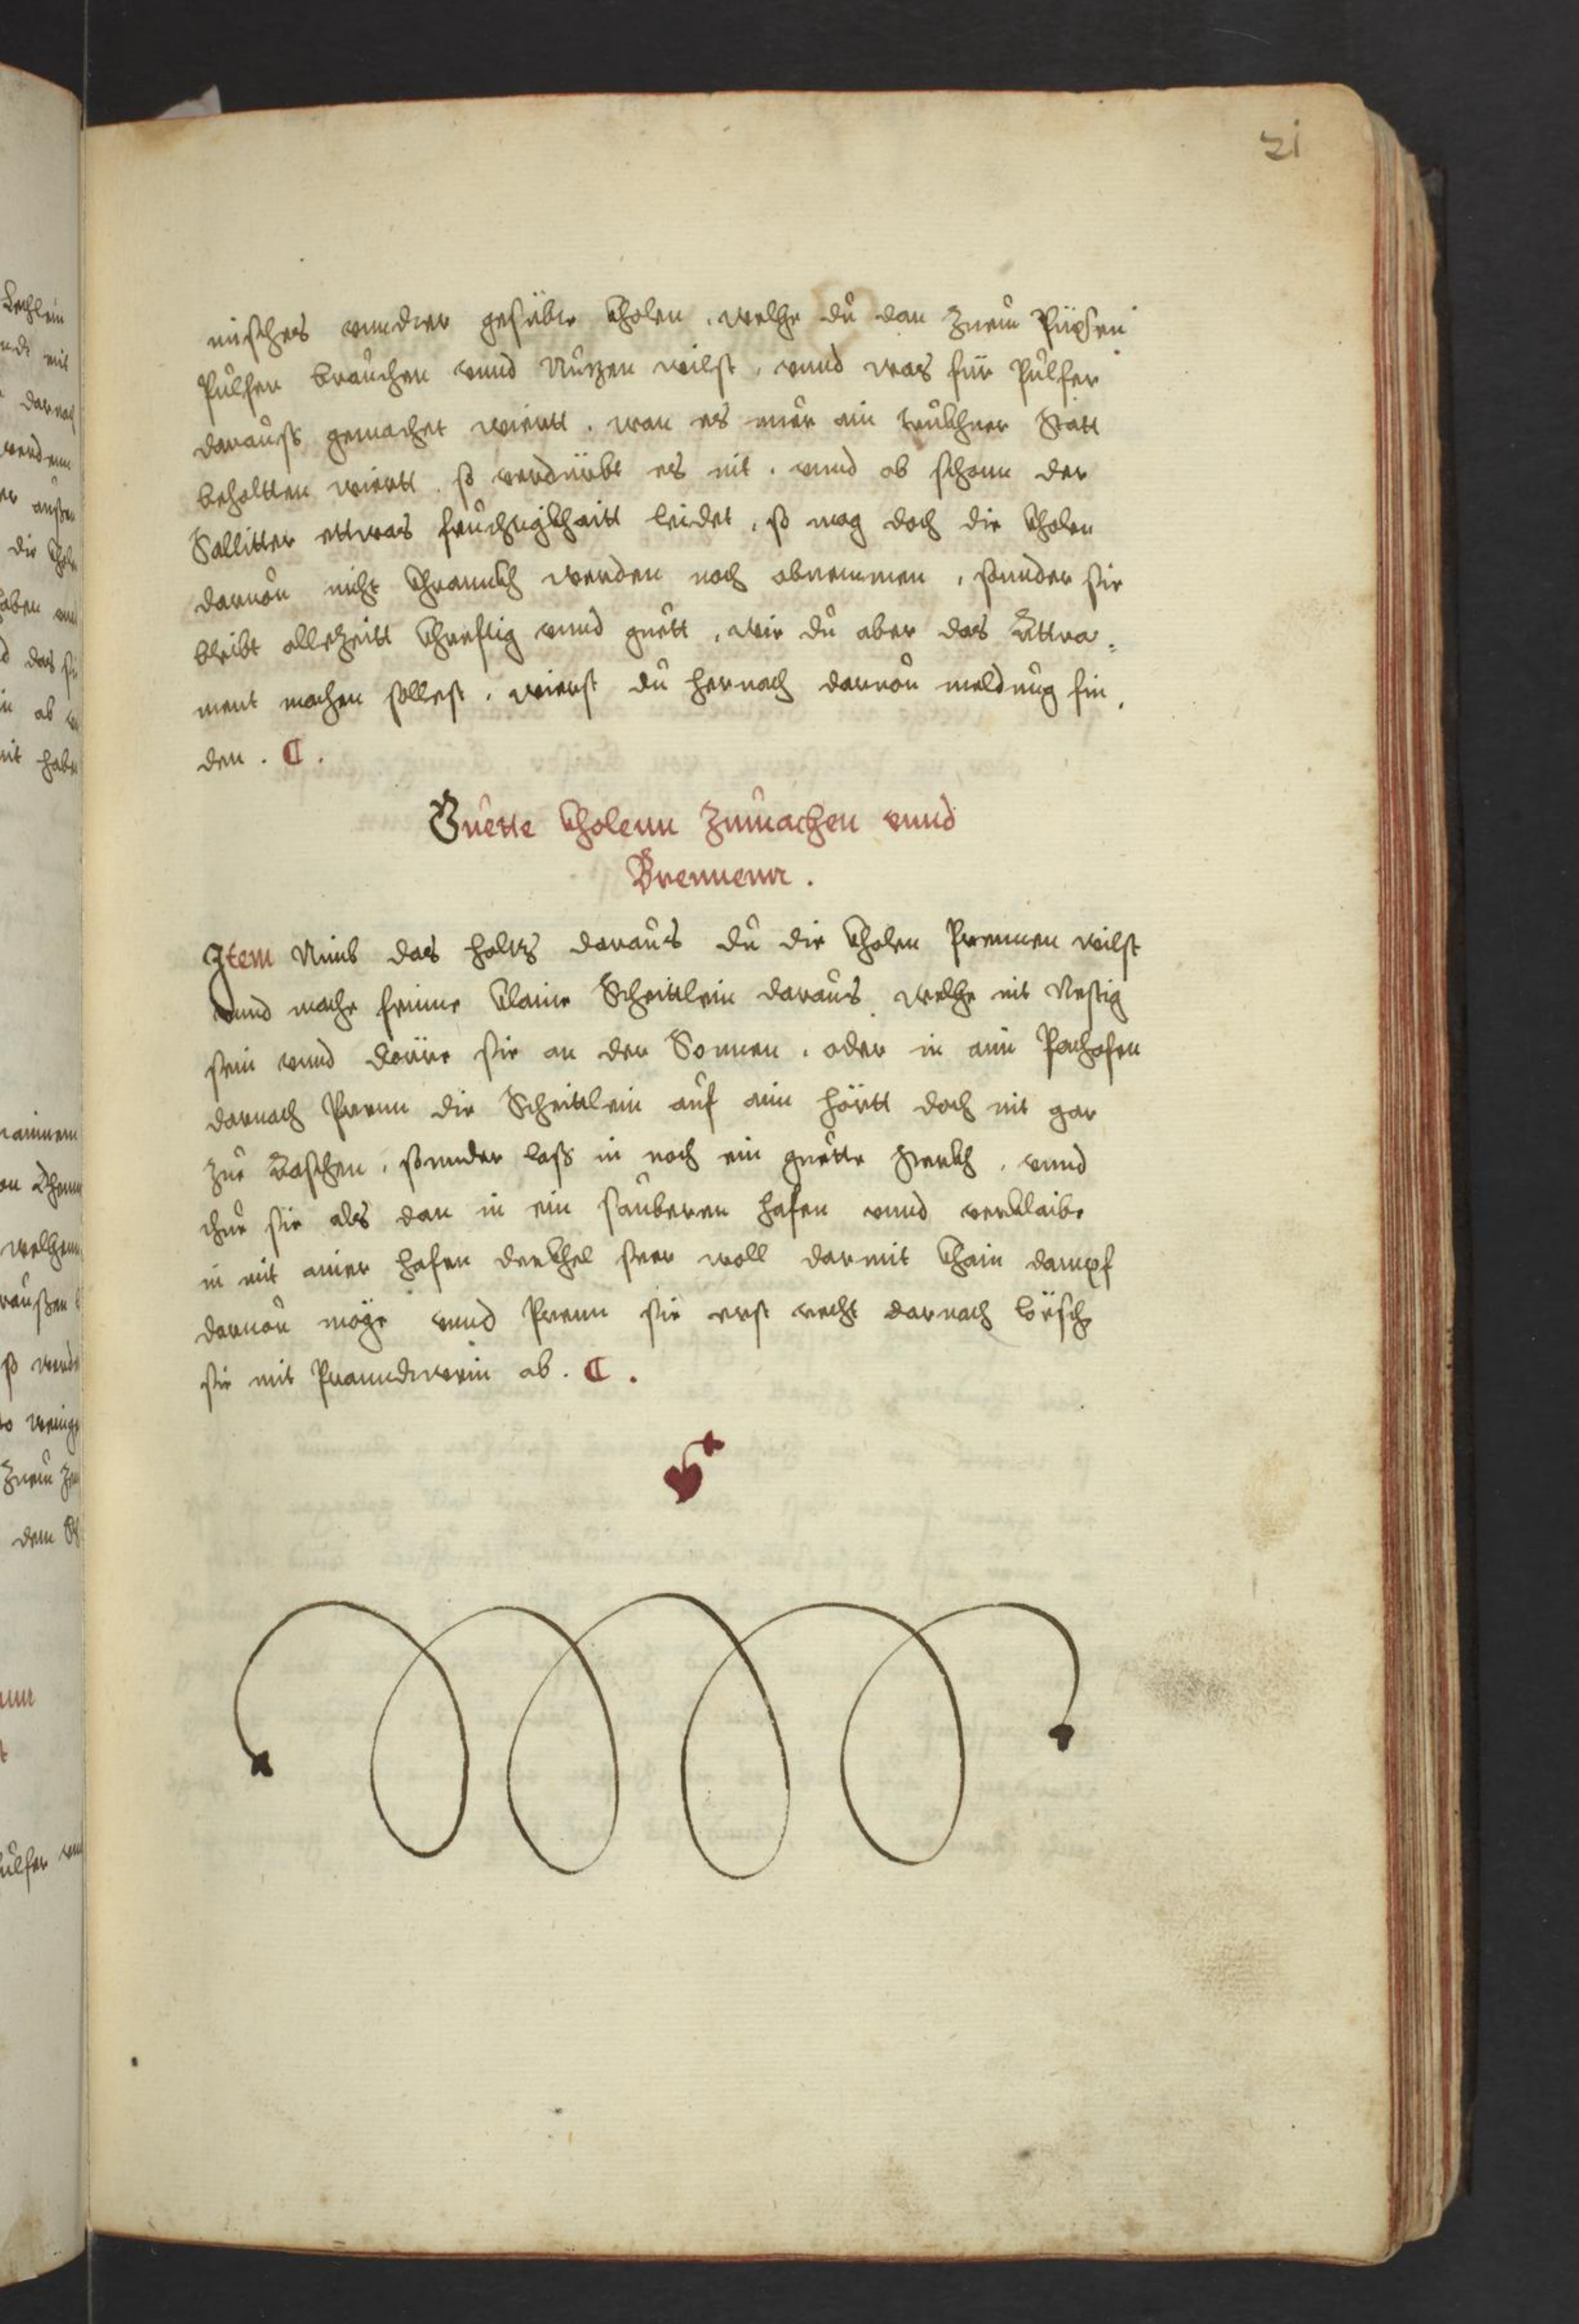 21
misches vnnder gesübte kholen, welche du dan zuem Püxsen
Pulfer brauchen vnnd Nutzen wilst, vnnd was für Pulfer
darauss gemachet wiertt. wan es nuer ain trukhner Statt
behaltten wiertt. so verdürbt es nit. vnnd ob schonn der
Sallitter ettwas feuchtigkhaitt leidet, so mag doch die kholen
daruon nicht khrannkh werden noch abnemmen, sonnder sie
bleibt allezeitt khreftig vnnd guett, wie du aber das Attra-
ment machen sollest. wierst du hernach daruon meldung fin,
den. C.
Guette kholenn zumachen vnnd
Brennenn.
Item Nimb das holtz daraus du die kholen Prennen wilst
vnnd mache feinne klaine Scheittlein daraus welche nit Nestig
sein vnnd dörre sie an der Sonnen. oder in ain Pachofen
darnach Prenn die Scheittlein auf ain hörtt doch nit gar
zue Aaschen, sonnder lass in noch ein guette sterkh, vnnd
thue sie als dan in ein sauberen hafen vnnd verklaibe
in mit ainer hafen dekhel seer woll darmit khain dampf
daruon möge vnnd Prenn sie erst recht darnach lösch
sie mit Pranndtwein ab. C.
Lechlein
darnach
werdenn
die khol
haben
das si
nit habe
welchem
weinge
zuem
dem
ulfer